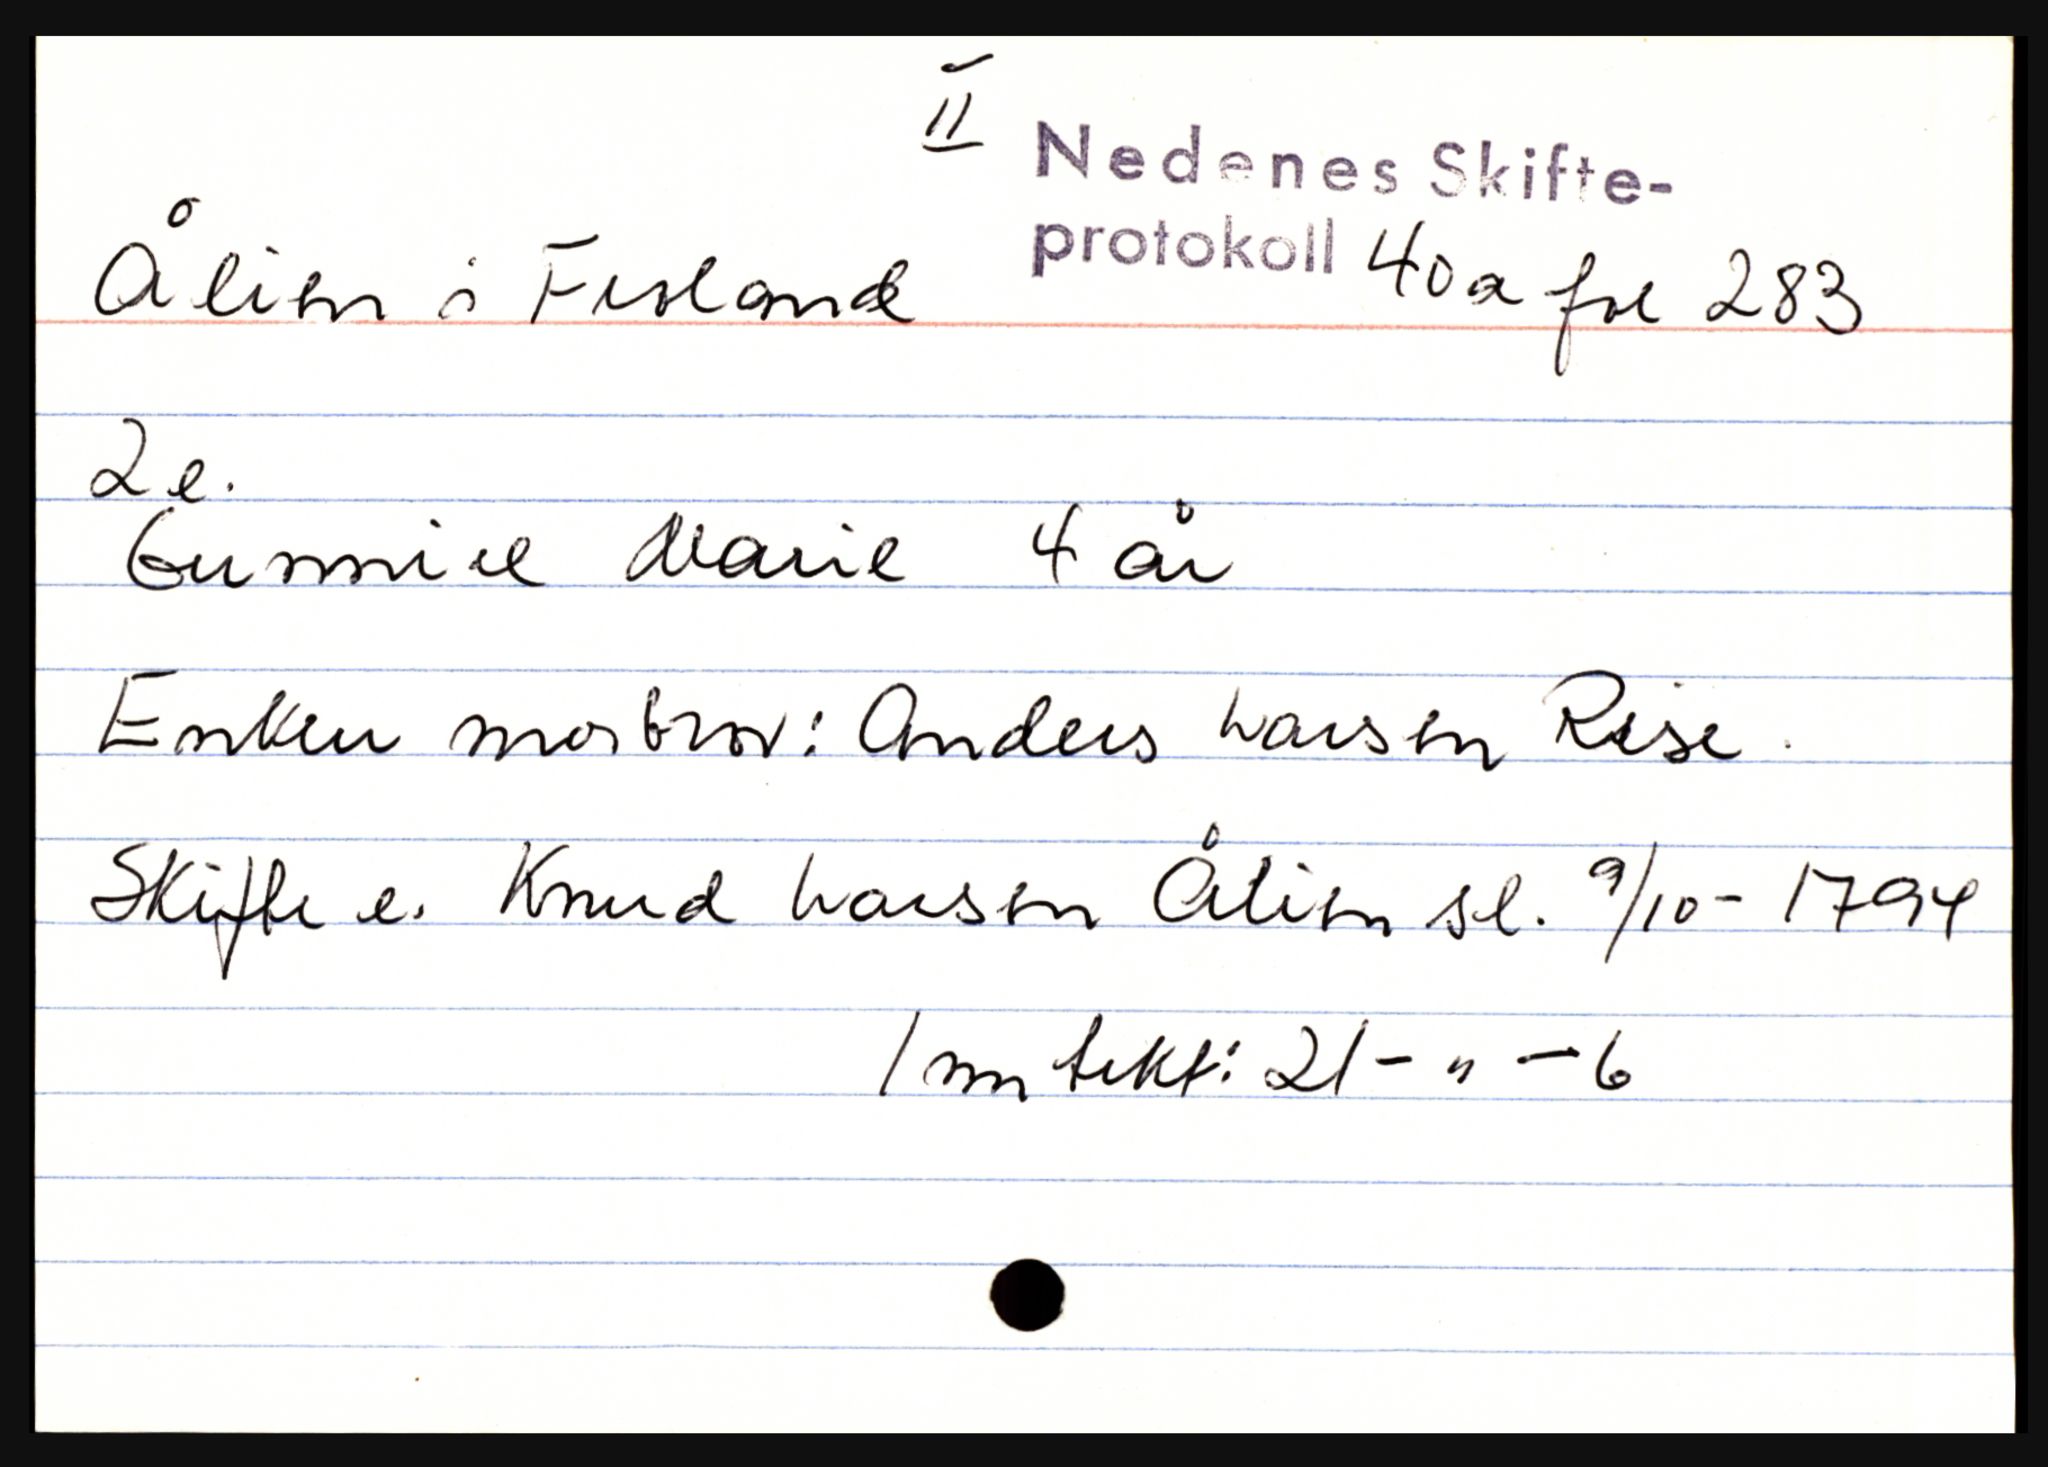 II
Nedenes Skifte-
Ålien i Froland protokoll 40a fol 283
2 e.
Gunnild Marie 4 år
Enken morbror: Anders Larsen Rise.
Skifte e. Knud Larsen Ålien sl. 9/10 - 1794
Inntekt: 21 - " - 6